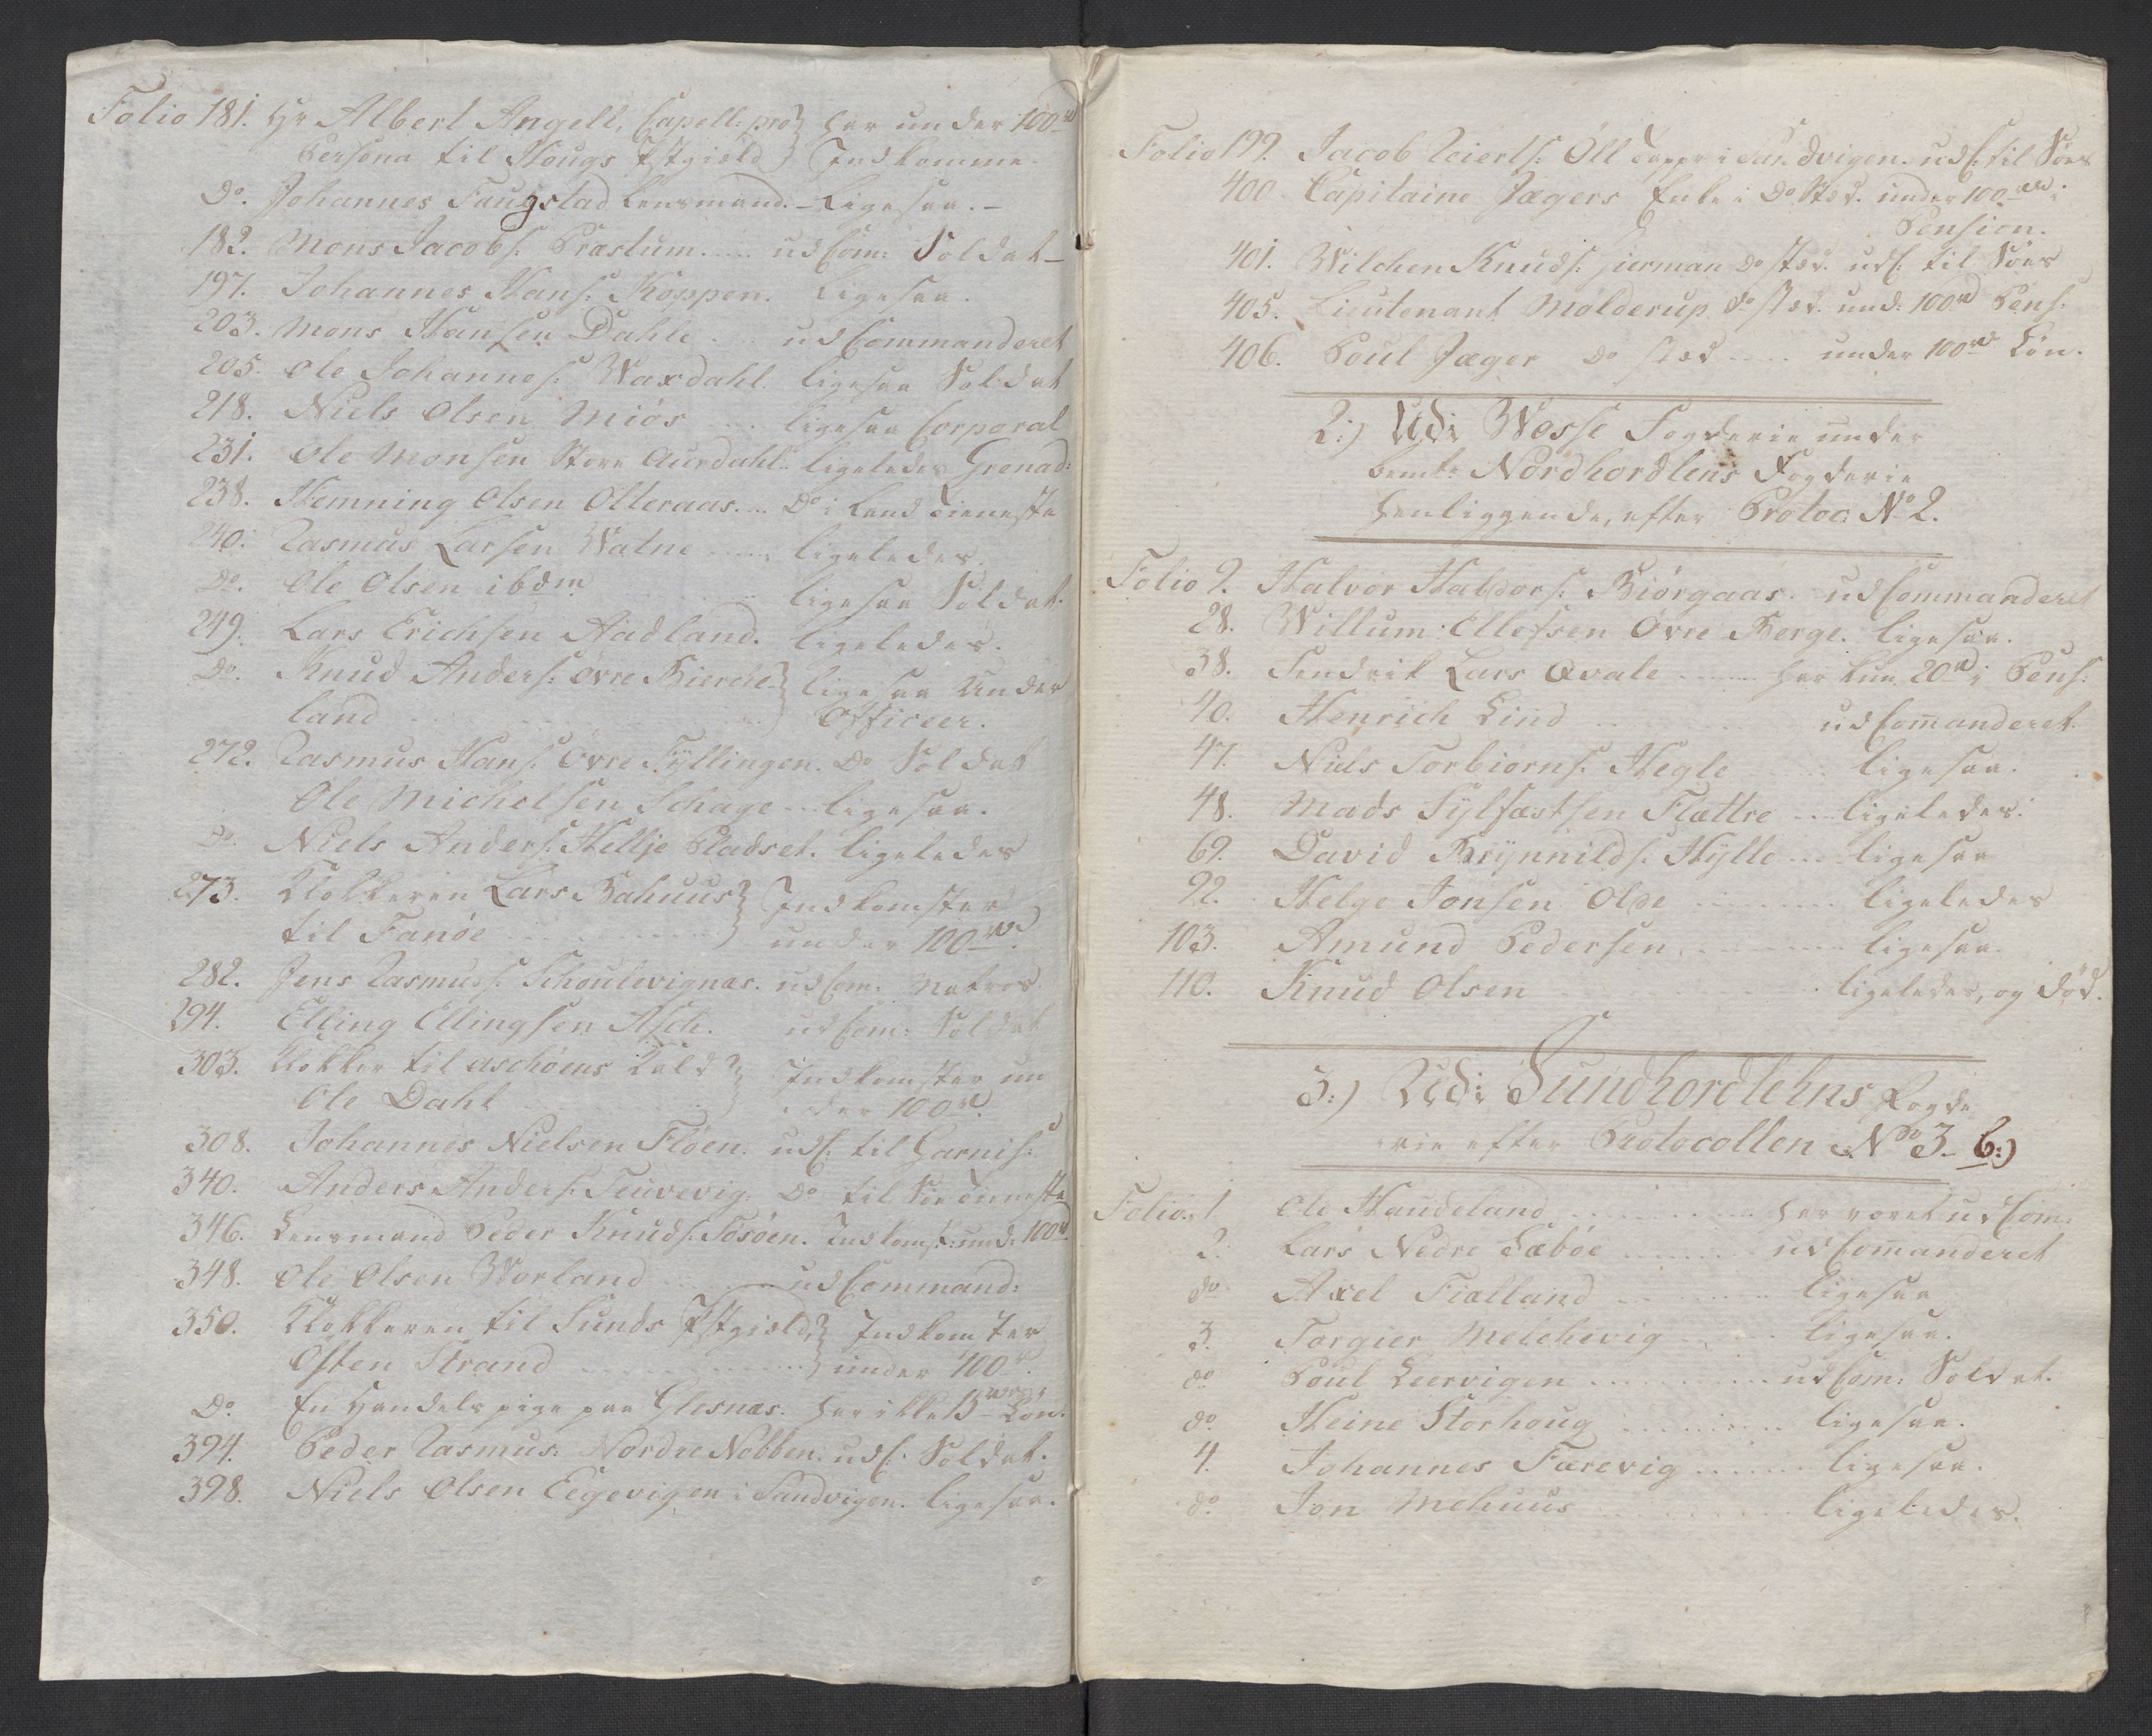 Folio 181. Hr Albert Angell, Capell: pro har under 100rd
Persona til Hougs Pstgield Indkomme.
Do. Johannes Faugstad Lensmand. – Ligesaa. –
182. Mons Jacobs: Præstum. udCom: Soldat –
197. Johannes Hans: Koppen. Ligesaa.
203. Mons Hansen Dahle udCommanderet
205. Ole Johannes: Waxdahl. ligesaa Soldat
218. Niels Olsen Miös ligesaa Corporal
231. Ole Monsen Store Aurdahl ligeledes Grenad:
238. Hemning Olsen Olleraas. Do i Land Tieneste
240. Rasmus Larsen Watne ligeledes.
Do. Ole Olsen ibdm ligesaa Soldat.
249. Lars Erichsen Aadland. ligeledes.
Do. Knud Anders: övre Birche- ligesaa Under
land Officeer.
272. Rasmus Hans: Övre Fyllingen. Do Soldat
Ole Michelsen Schage ligesaa.
Do. Niels Anders: Hellje Pladset. ligeledes
273. Klokkeren Lars Bahuus Indkomster
til Fanöe under 100rd.
282. Jens Rasmuss: Schoulevignæs. udCom: Matros.
294. Elling Ellingsen Asch. udCom: Soldat
303. Klokker til aschöens Kald Indkomster un
Ole Dahl der 100rd.
308. Johannes Nielsen Flöen. udC: til Garnis:
340. Anders Anders: Teuvevig. Do til Söe Tieneste
346. Lensmand Peder Knuds: Tösöen. Indkomst: und: 100rd.
348. Ole Olsen Worland udCommand:
350. Klokkeren til Sunds Pstgield, Indkomster
Osten Strand under 100rd.
Do. En Handels pige paa Glesnæs. har ikke 15rd Lön.
394. Peder Rasmus: Nordre Nobben. udC: Soldat.
398. Niels Olsen Eegevigen i Sandvigen. ligesaa.
Folio 199. Jacob Zeierts: Öll Tapper i Sandvigen. udC: til Söes
400 Capitaine Jægers Enke i Do Stæd. under 100rd i
Pension.
401. Wilchen Knuds: Do stæd. udC: til Söes
405. Lieutenant Molderup do stæd. und: 100rd Pens:
406. Poul Jæger Do stæd under 100rd Lön.
2:) Udi Wosse Fogderie under
bemte Nordhordlens Fogderie
henliggende, efter Protoc: No 2.
Folio 9. Halvor Haldors: Biörgaas. udCommanderet
28. Willum Ellefsen Övre Berge. ligesaa.
38. Fendrik Lars Qvale har kun 20rd i Pens:
40. Henrich Lind udCom̄anderet.
47. Niels Torbiorns: Hegle ligesaa.
48. Mads Sylfæstsen Flættre ligeledes.
69. David Brynnilds: Hylle ligesaa
92. Helge Jonsen Olde ligeledes
103. Amund Pedersen ligesaa.
110. Knud Olsen ligeledes, og död.
3:) Udi Sundhordlehns Fogde
rie efter Protocollen No 3 – 6:)
Folio. 1. Ole Haudeland har været udCom:
2. Lars Nedre Sæböe udCom̄anderet
do Axel Fialland ligesaa
3. Torgier Melchevig ligesaa.
do Poul Leervigen udCom: Soldat.
do Heine Storhoug ligesaa.
4. Johannes Færevig ligesaa.
do. Jon Mehuus ligeledes.